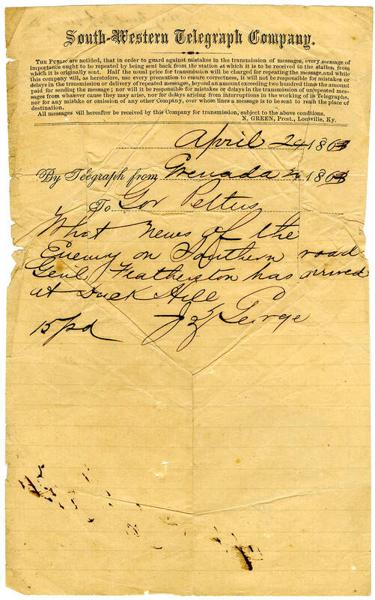 South-Western Telegraph Company.
THE PUBLIC are notified, that in order to guard against mistakes in the transmission of messages, every message of
importance ought to be repeated by being sent back from the station at which it is to be received to the station, from
which it is originally sent. Half the usual price for transmission will be charged for repeating the message, and while
this company will, as heretofore, use every precaution to ensure correctness, it will not be responsible for mistakes or
delays in the transmission or delivery of repeated messages, beyond an amount exceeding two hundred times the amount
paid for sending the message; nor will it be responsible for mistakes or delays in the transmission of unrepeated messages
from whatever cause they may arise, nor for delays arising from interruptions in the working of its Telegraphs,
nor for any mistake or omission of any other Company, over whose lines a message is to be sent to reach the place of
destination.
All messages will hereafter be received by this Company for transmission, subject to the above conditions.
N. GREEN, Prest., Louisville, Ky.
April 24 1863
By Telegraph from Grenada 24 1863
To Gov Pettus
What News of the
Enemy on Southern road
Genl Featherston has arrived
at Duck Hill
15 pd J Z George